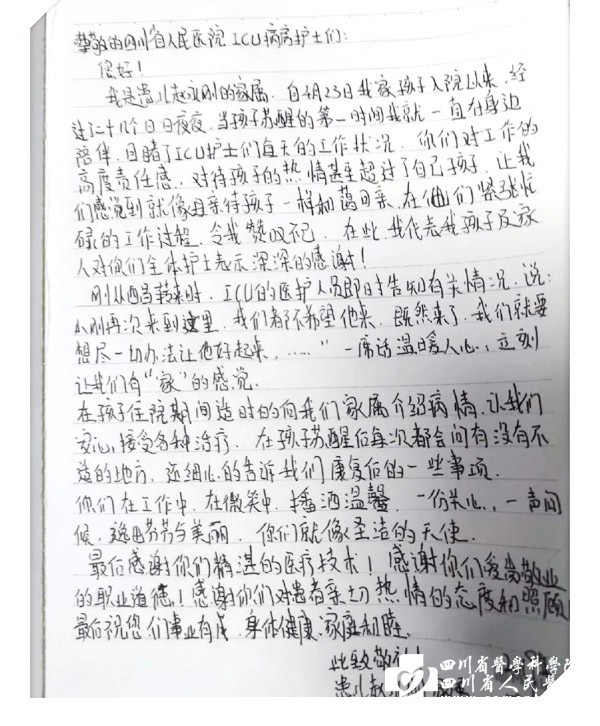 尊敬的四川省人民医院ICU病房护士们:
您好!
我是患儿赵永刚的家属.自4月23日我家孩子入院以来,经
过二十几个日日夜夜,当孩子苏醒的第一时间我就一直在身边
陪伴,目睹了ICU护士们每天的工作状况.你们对工作的
高度责任感.对待孩子的热情甚至超过了自己孩子.让我
们感觉到就像母亲待孩子一样和蔼可亲.在他们紧张忙
碌的工作过程.令我赞叹不已.在此,我代表我孩子及家
人对你们全体护士表示深深的感谢!
刚从西昌转来时.ICU的医护人员即时告知有关情况.说:
小刚再次来到这里.我们都不希望他来.既然来了.我们就要
想尽一切办法让他好起来,……"一席话温暖人心,立刻
让我们有"家"的感觉.
在孩子住院期间适时的向我们家属介绍病情.让我们
安心接受各种治疗.在孩子苏醒后每次都会问有没有不
适的地方,还细心的告诉我们康复后的一些事项.
你们在工作中.在微笑中.播洒温馨.一份关心,一声问
候.逸出芬芳与美丽.你们就像圣洁的天使.
最后感谢你们精湛的医疗技术!感谢你们爱岗敬业
的职业道德!感谢你们对患者亲切热情的态度和照顾!
最后祝您们事业有成.身体健康.家庭和睦.
此致敬礼!
患儿赵永刚
四川省醫學科學院
四川省人民醫